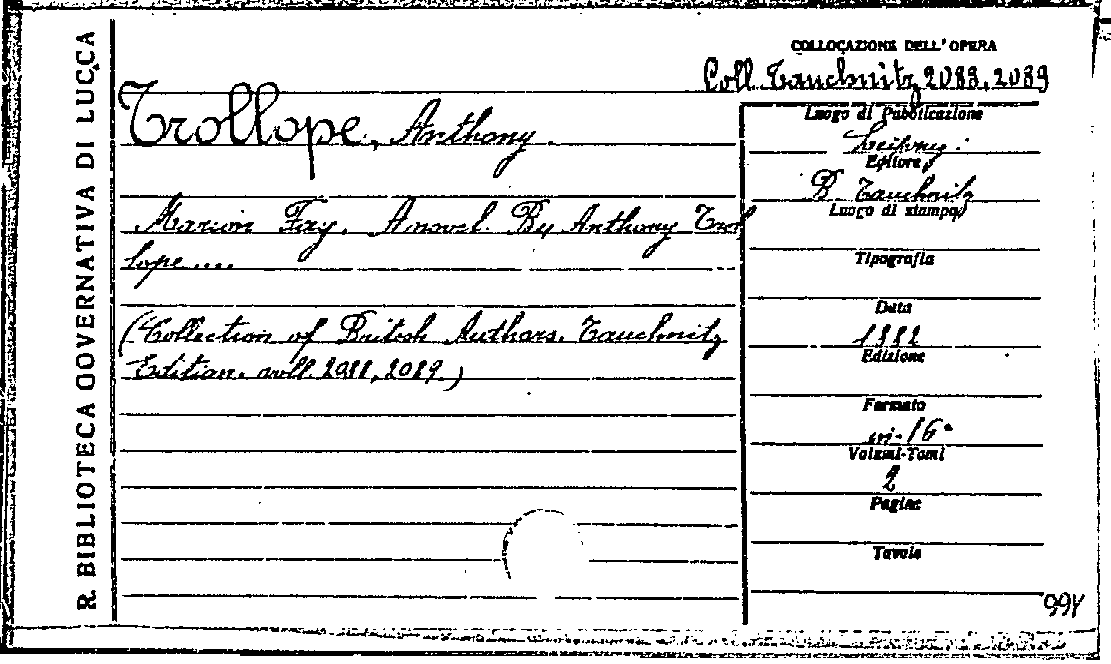 R. BIBLIOTECA GOVERNATIVA DI LUCCA
COLLOCAZIONE DELL'OPERA
Coll. Tauchnitz, 2088, 2089
Trollope, Anthony.
Marion Fay. A novel. By Anthony Trol
lope....
(Collection of British Authors. Tauchnitz
Edition. voll. 2088, 2089.)
Luogo di Pubblicazione
Leipzig.
Editore
B. Tauchnitz
Luogo di stampa
Tipografia
Data
1882
Edizione
Formato
in-16°
Volumi-Tomi
2
Pagine
Tavole